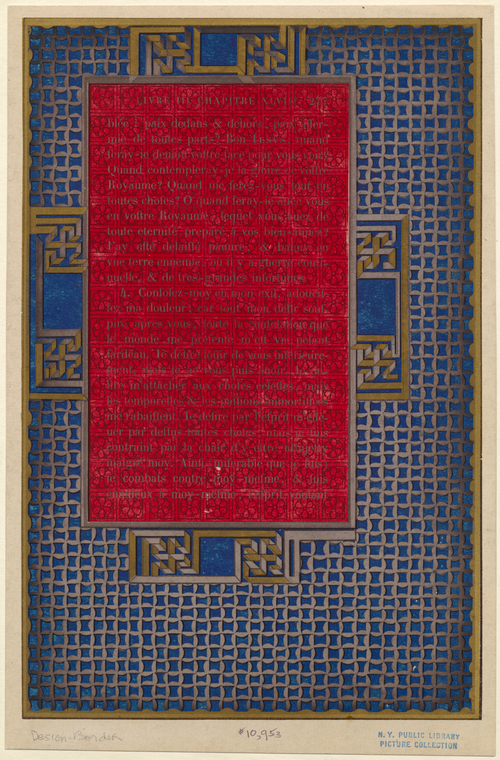 LIVRE III CHAPITRE XLVIII. 27
bléc! paix dedans & dehors, paix affer-
mie de toutes parts! Bon IESVS, quand
feray-ie deuant vostre face pour vous voir?
Quand contempleray-je la gloire de vostre
Royaume? Quand me serez-vous tout en
toutes choses? O quand seray-je auec vous
en vostre Royaume, lequel vous auez de
toute eternité preparé à vos bien-aimez?
I'ay esté delaissé pauure, & banny en
vne terre ennemie, où il y a guerre conti-
nuelle, & de tres-grandes infortunes.
4. Consolez-moy en mon exil, adoucis-
sez ma douleur: car tout mon desir souf-
pire apres vous, toute la consolation que
le monde me presente m'est vn pesant
fardeau. Ie desire jouir de vous
mais je ne puis
m'attacher aux choses celestes, mais
les temporelles & les passions immortifiées
me rabaissent. Ie desire par l'esprit m'esle-
uer par dessus toutes choses, mais je suis
contraint par la chair d'y estre
malgré moy. Ainsi miserable que je suis,
je combats contre moy-mesme, & suis
ennuieux à moy-mesme, l'esprit voulant
Design-Border
#10,953
N. Y. PUBLIC LIBRARY
PICTURE COLLECTION